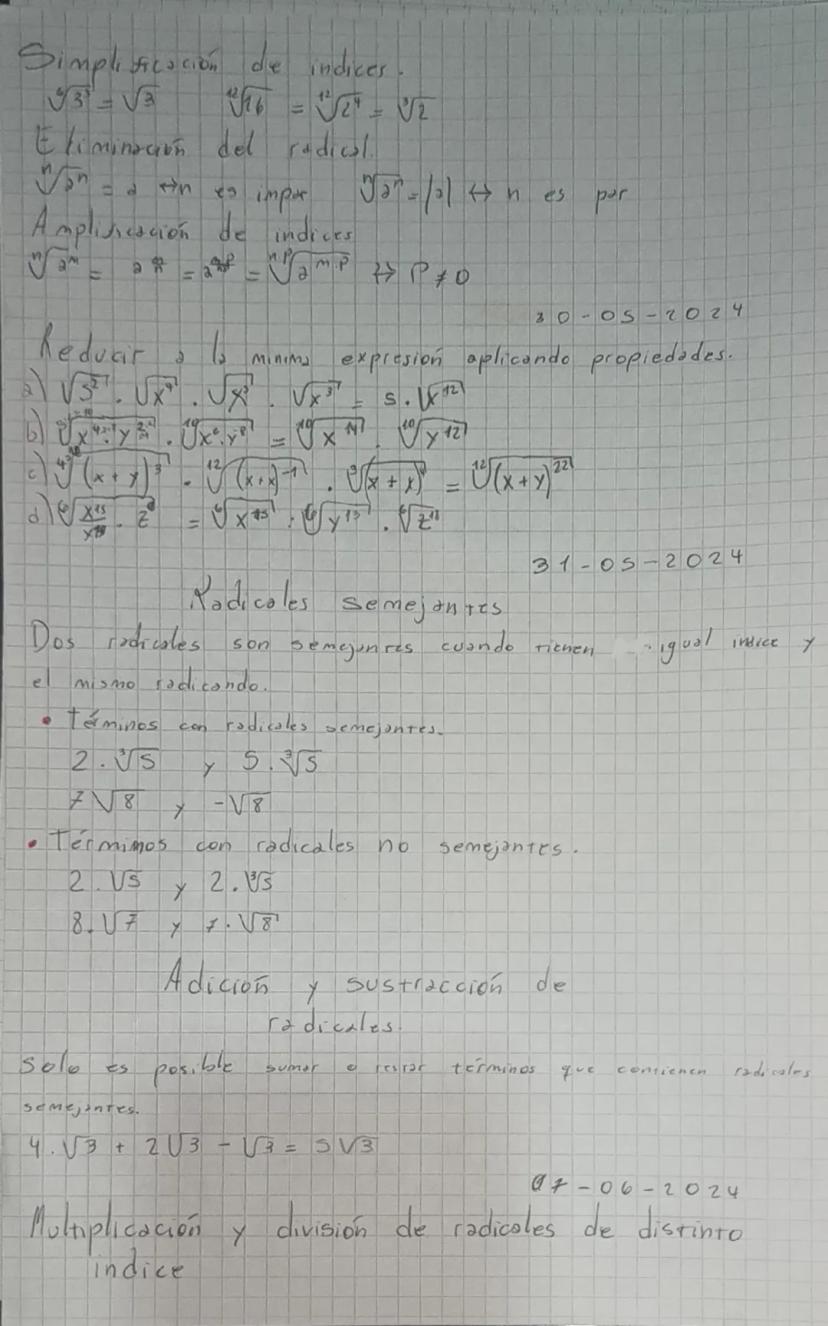 Simplificación de indices.
⁶√3³ = √3   ¹²√16 = ¹²√2⁴ = ³√2
Eliminación del radical.
ⁿ√aⁿ = a ↔ n es impar   ⁿ√aⁿ = |a| ↔ n es par
Amplificación de indices
ⁿ√aᵐ = = = ⁿᵖ√a^(m.p) ↔ P ≠ 0
30-05-2024
Reducir a la minima expresión aplicando propiedades.
a) √5² . √x⁴ . . √x³ = 5 . √x¹²
b) = ¹⁰√x¹⁴ . ¹⁰√y¹²
c) (x + y)³ . ¹²√(x+x)⁻¹ . = ¹²√(x+y)²²
d)
31-05-2024
Radicales semejantes
Dos radicales son semejantes cuando tienen igual indice y
el mismo radicando.
• términos con radicales semejantes.
2 . ³√5 y 5 . ³√5
7√8 y -√8
• Términos con radicales no semejantes.
2 . √5 y 2 . ³√5
8 . √7 y 7 . √8
Adición y sustracción de
radicales.
Solo es posible sumar o restar términos que contienen radicales
semejantes.
4 . √3 + 2√3 - √3 = 5√3
07-06-2024
Multiplicación y división de radicales de distinto
indice